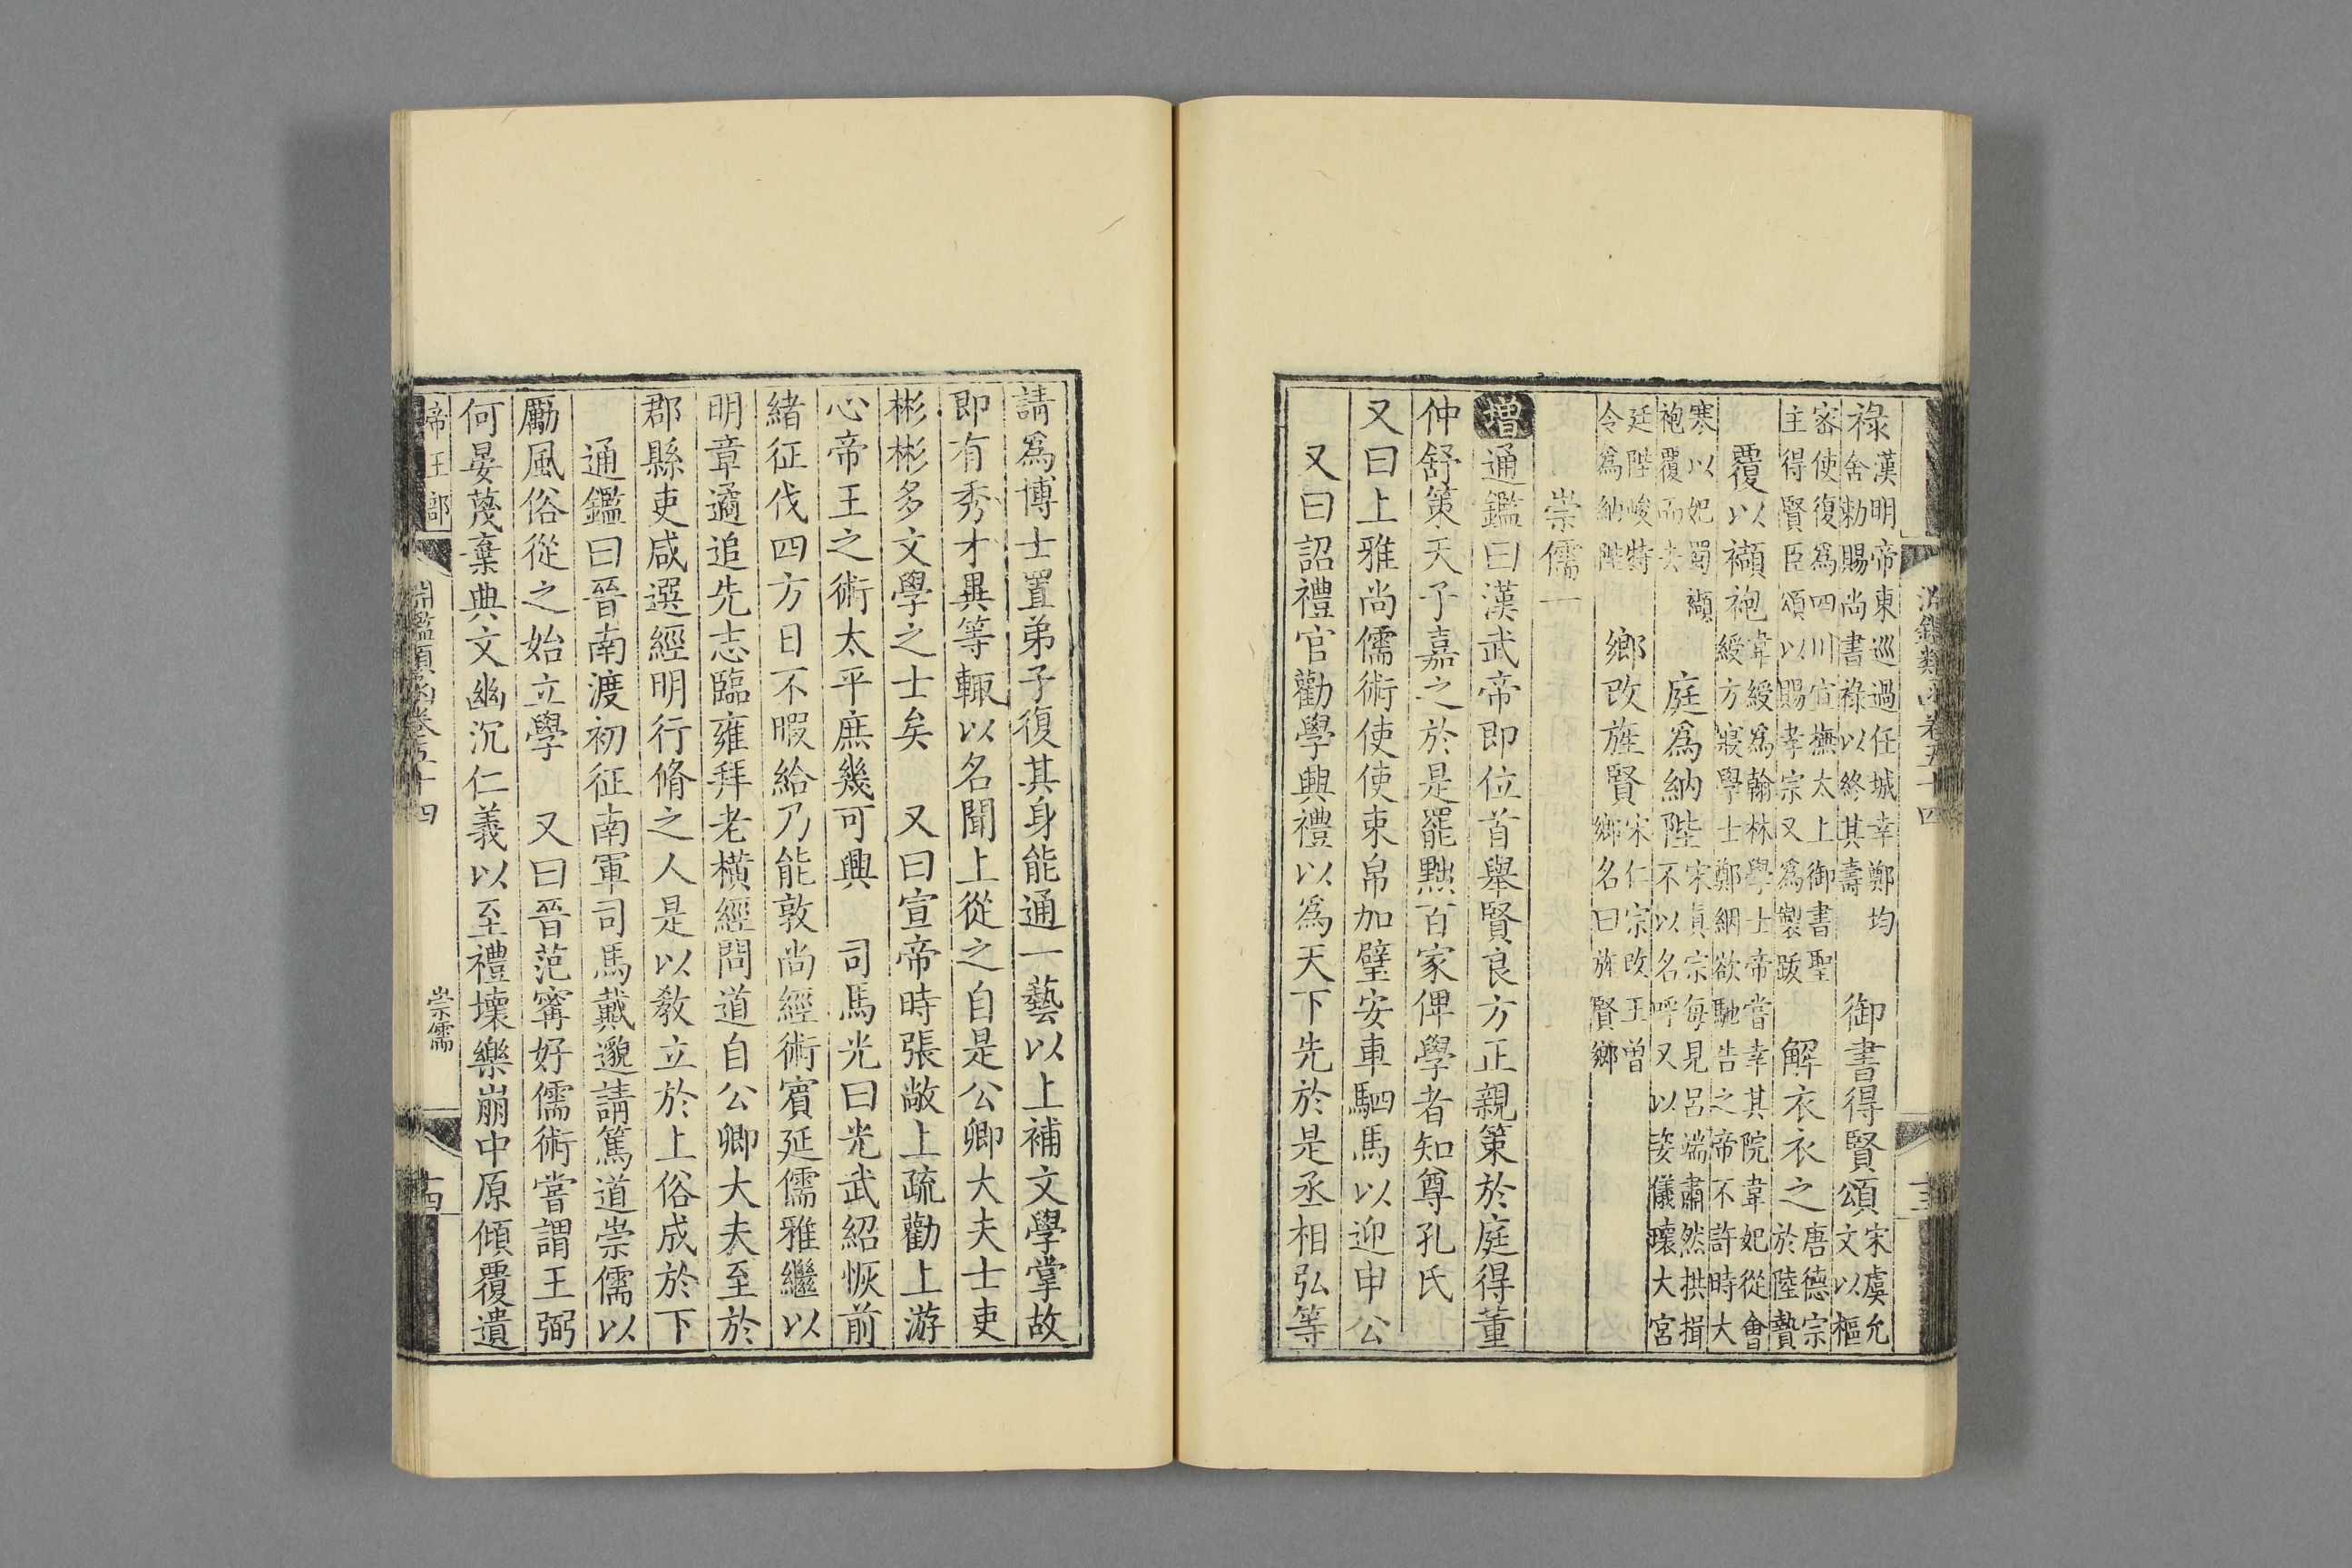 淵鑑類函卷五十四 十三
祿 漢明帝東巡過任城幸鄭均
舍勅賜尚書祿以終其壽 御書得賢頌 宋虞允
文以樞
密使復爲四川宣撫太上御書聖
主得賢臣頌以賜孝宗又爲製跋 解衣衣之 唐德宗
於陸贄
覆以襭袍 韋綬爲翰林學士帝嘗幸其院韋妃從會
綬方寢學士鄭絪欲馳告之帝不許時大
寒以妃蜀襭
袍覆而去 庭爲納陛 宋眞宗每見呂端肅然拱揖
不以名呼又以姿儀瓌大宮
廷陛峻特
令爲納陛 鄉改旌賢 宋仁宗改王曾
鄉名曰旌賢鄉
崇儒一
增 通鑑曰漢武帝即位首舉賢良方正親策於庭得董
仲舒策天子嘉之於是罷黜百家俾學者知尊孔氏
又曰上雅尚儒術使使束帛加璧安車駟馬以迎申公
又曰詔禮官勸學興禮以爲天下先於是丞相弘等
請爲博士置弟子復其身能通一藝以上補文學掌故
即有秀才異等輒以名聞上從之自是公卿大夫士吏
彬彬多文學之士矣 又曰宣帝時張敞上疏勸上游
心帝王之術太平庶幾可興 司馬光曰光武紹恢前
緒征伐四方日不暇給乃能敦尚經術賓延儒雅繼以
明章遹追先志臨雍拜老橫經問道自公卿大夫至於
郡縣吏咸選經明行脩之人是以敎立於上俗成於下
通鑑曰晉南渡初征南軍司馬戴邈請篤道崇儒以
勵風俗從之始立學 又曰晉范甯好儒術嘗謂王弼
何晏蔑棄典文幽沉仁義以至禮壞樂崩中原傾覆遺
帝王部 淵鑑類函卷五十四 崇儒 十四